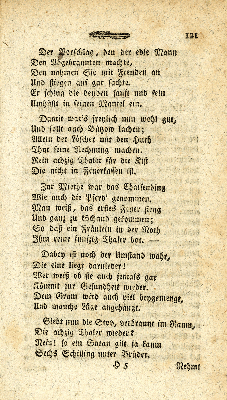 121
Der Vorschlag, den der edle Mann
Den Abgebrannten machte,
Den nahmen Sie mit Freuden an
und stiegen auf gar sachte.
Er schlug die beyden sanft und fein
Umhüllt in seinen Mantel ein.
Damit war's freylich nun wohl gut,
Und sollt auch Bützow lachen;
Allein der Löscher mit dem Huth
Thut seine Rechnung machen.
Nein achzig Thaler für die Kist
Die nicht in Feuerkassen ist.
Zur Miethe war das
Wie auch die Pferd' genommen.
Man weiß, das erstes Feuer fieng
Und ganz zu Schand gekommen;
So daß ein Fräulein in der Noth
Ihm vier funfzig Thaler bot. —
Dabey ist noch der Umstand wahr,
Die eine liegt darnieder!
Wer weiß ob sie auch jemals gar
Kömmt zur Gesundheit wieder.
Dem Gram wird auch viel beygemenge,
Und manche Lüge angehängt.
Giebt nun die
Die achzig Thaler wieder?
Nein! so ein
Sechs Schilling unter Brüder.
H 5
Nehmt